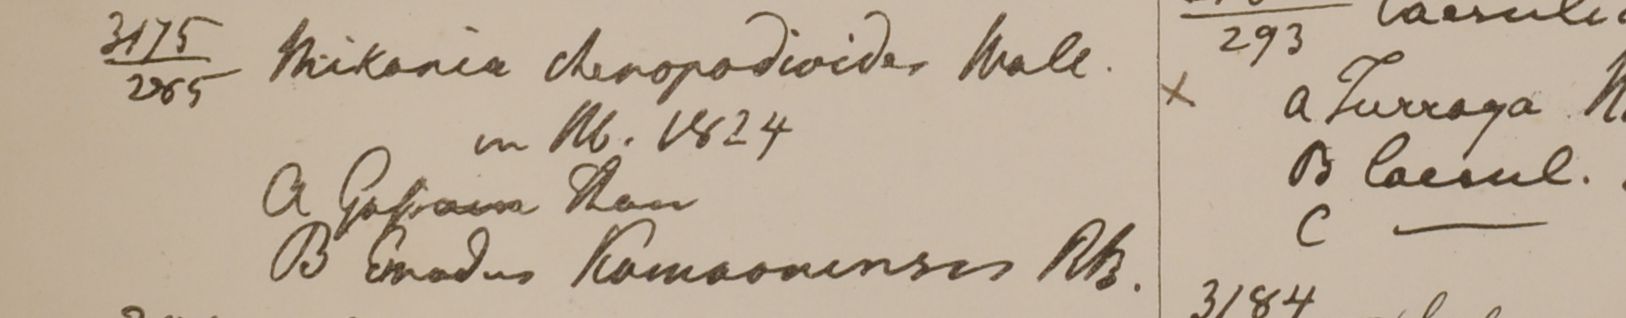 3175
265
Mikania chenopodioides Wall.
in Hb. 1824
a Gossain Than
B Emodus Kamaonensis RB.
293
x
a Turraya
B Caesul.
C —
3184